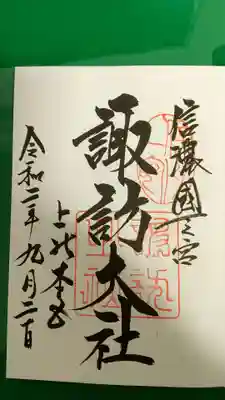 信濃國一之宮
諏訪大社
上社本宮
令和二年九月二日